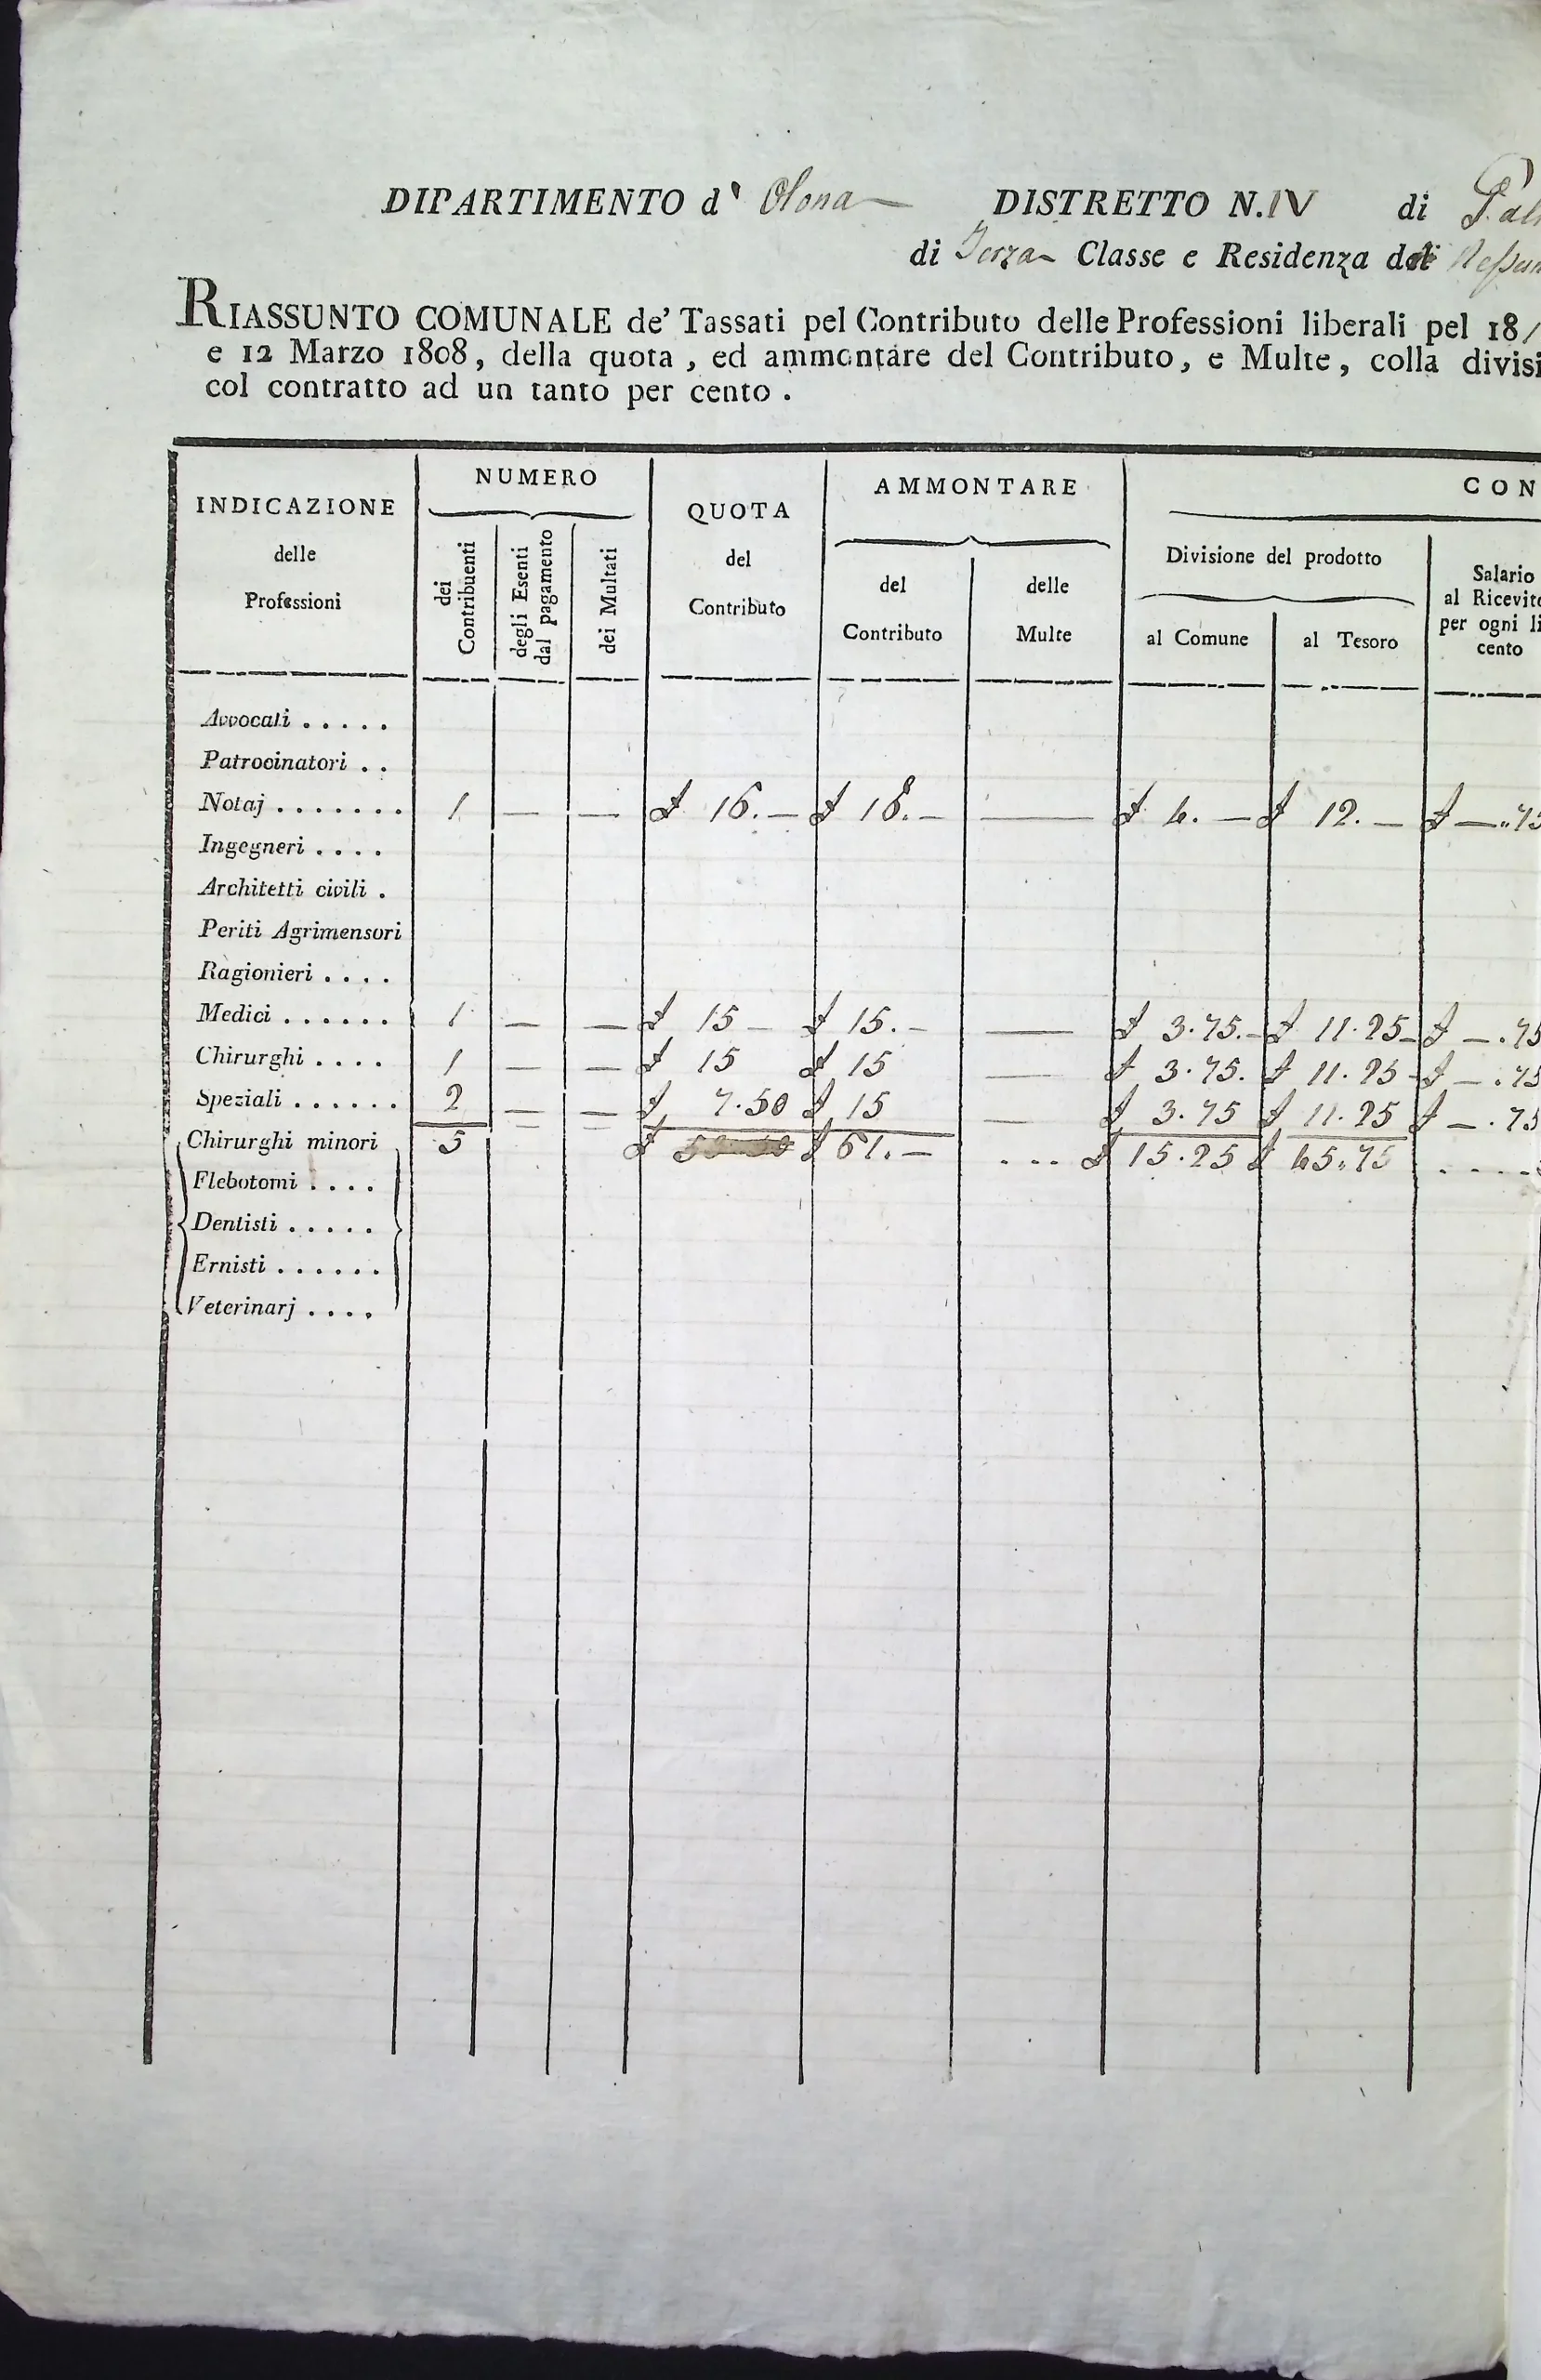 DIPARTIMENTO d' Olona DISTRETTO N. IV di
di Terza Classe e Residenza del
RIASSUNTO COMUNALE de' Tassati pel Contributo delle Professioni liberali pel 18
e 12 Marzo 1808, della quota, ed ammontare del Contributo, e Multe, colla divisi
col contratto ad un tanto per cento.
INDICAZIONE delle Professioni
NUMERO
dei Contribuenti
degli Esenti dal pagamento
dei Multati
QUOTA del Contributo
AMMONTARE
del Contributo
delle Multe
CON
Divisione del prodotto
al Comune
al Tesoro
Salario
al Ricevito
per ogni li
cento
Avvocati . . . . .
Patrocinatori . .
Notaj . . . . . . . 1 — — £ 16. — £ 18. — — £ 4. — £ 12. — £ — .. 75
Ingegneri . . . .
Architetti civili .
Periti Agrimensori
Ragionieri . . . .
Medici . . . . . . 1 — — £ 15 — £ 15. — — £ 3.75. — £ 11.25 — £ — . 75
Chirurghi . . . . 1 — — £ 15 £ 15 — £ 3.75. £ 11.25 — £ — . 75
Speziali . . . . . . 2 — — £ 7.50 £ 15 — £ 3.75 £ 11.25 £ — . 75
Chirurghi minori 5 £ £ 61. — . . . £ 15.25 £ 45.75 . . . .
Flebotomi . . . .
Dentisti . . . . .
Ernisti . . . . . .
Veterinarj . . . .